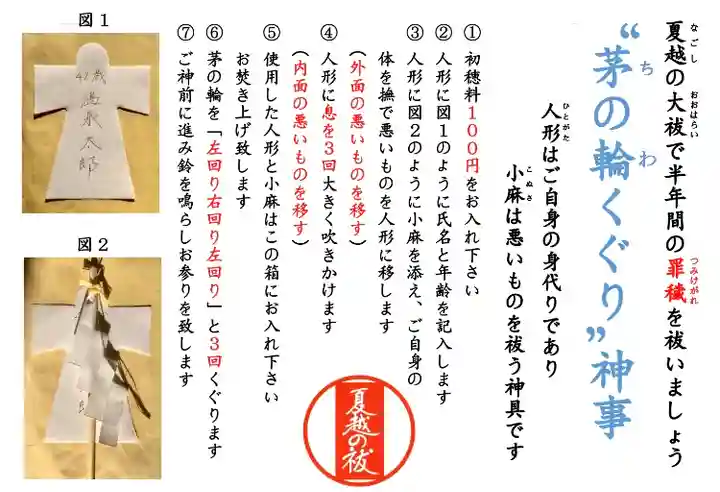 夏越の大祓で半年間の罪穢を祓いましょう
なごし
おおはらい
つみけがれ
“茅の輪くぐり”神事
ち
わ
人形はご自身の身代りであり
ひとがた
小麻は悪いものを祓う神具です
こぬさ
① 初穂料１００円をお入れ下さい
② 人形に図１のように氏名と年齢を記入します
③ 人形に図２のように小麻を添え、ご自身の
体を撫で悪いものを人形に移します
（外面の悪いものを移す）
④ 人形に息を３回大きく吹きかけます
（内面の悪いものを移す）
⑤ 使用した人形と小麻はこの箱にお入れ下さい
お焚き上げ致します
⑥ 茅の輪を「左回り右回り左回り」と３回くぐります
⑦ ご神前に進み鈴を鳴らしお参りを致します
夏越の祓
図１
太郎
図２